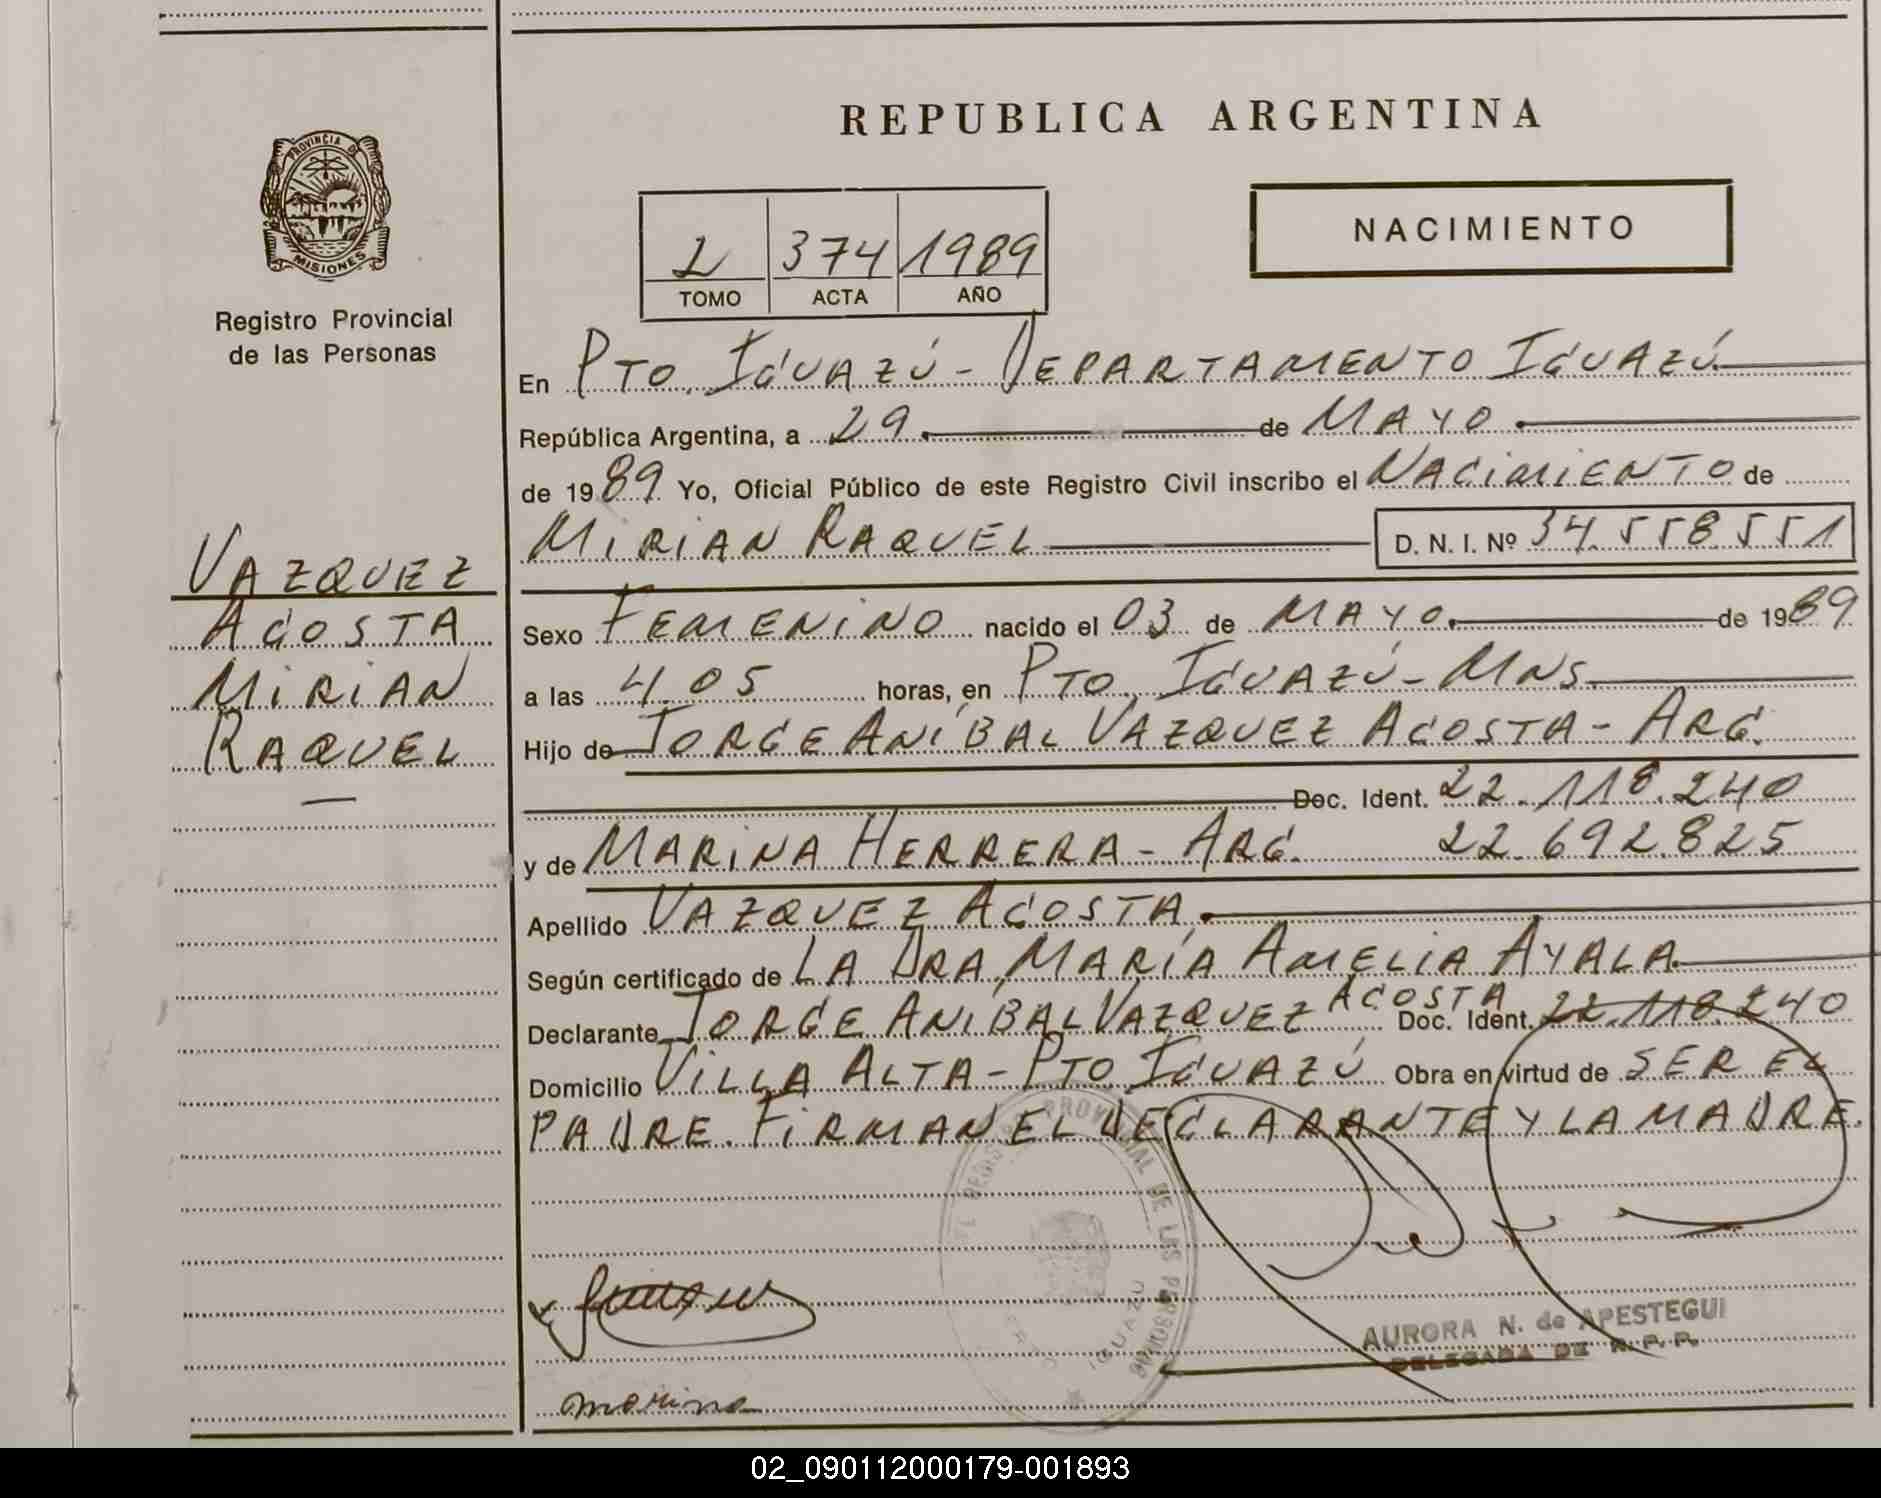 REPUBLICA ARGENTINA
PROVINCIA DE
MISIONES
Registro Provincial
de las Personas
NACIMIENTO
2 374 1989
TOMO ACTA AÑO
En PTO. IGUAZÚ - DEPARTAMENTO IGUAZÚ
República Argentina, a 29 de MAYO
de 1989 Yo, Oficial Público de este Registro Civil inscribo el NACIMIENTO de
MIRIAN RAQUEL D. N. I. Nº 34.558.551
VAZQUEZ
ACOSTA
MIRIAN
RAQUEL
Sexo FEMENINO nacido el 03 de MAYO. de 1989
a las 4.05 horas, en PTO. IGUAZÚ - MNS.
Hijo de JORGE ANÍBAL VAZQUEZ ACOSTA - ARG.
Doc. Ident. 22.118.240
y de MARINA HERRERA - ARG. 22.692.825
Apellido VAZQUEZ ACOSTA.
Según certificado de LA DRA. MARÍA AMELIA AYALA.
Declarante JORGE ANÍBAL VAZQUEZ ACOSTA Doc. Ident. 22.118.240
Domicilio VILLA ALTA - PTO. IGUAZÚ Obra en virtud de SER EL
PADRE. FIRMAN EL DECLARANTE Y LA MADRE.
REGISTRO PROVINCIAL DE LAS PERSONAS
IGUAZU
AURORA N. de APESTEGUI
DELEGADA DE R. P. P.
marina
02_090112000179-001893